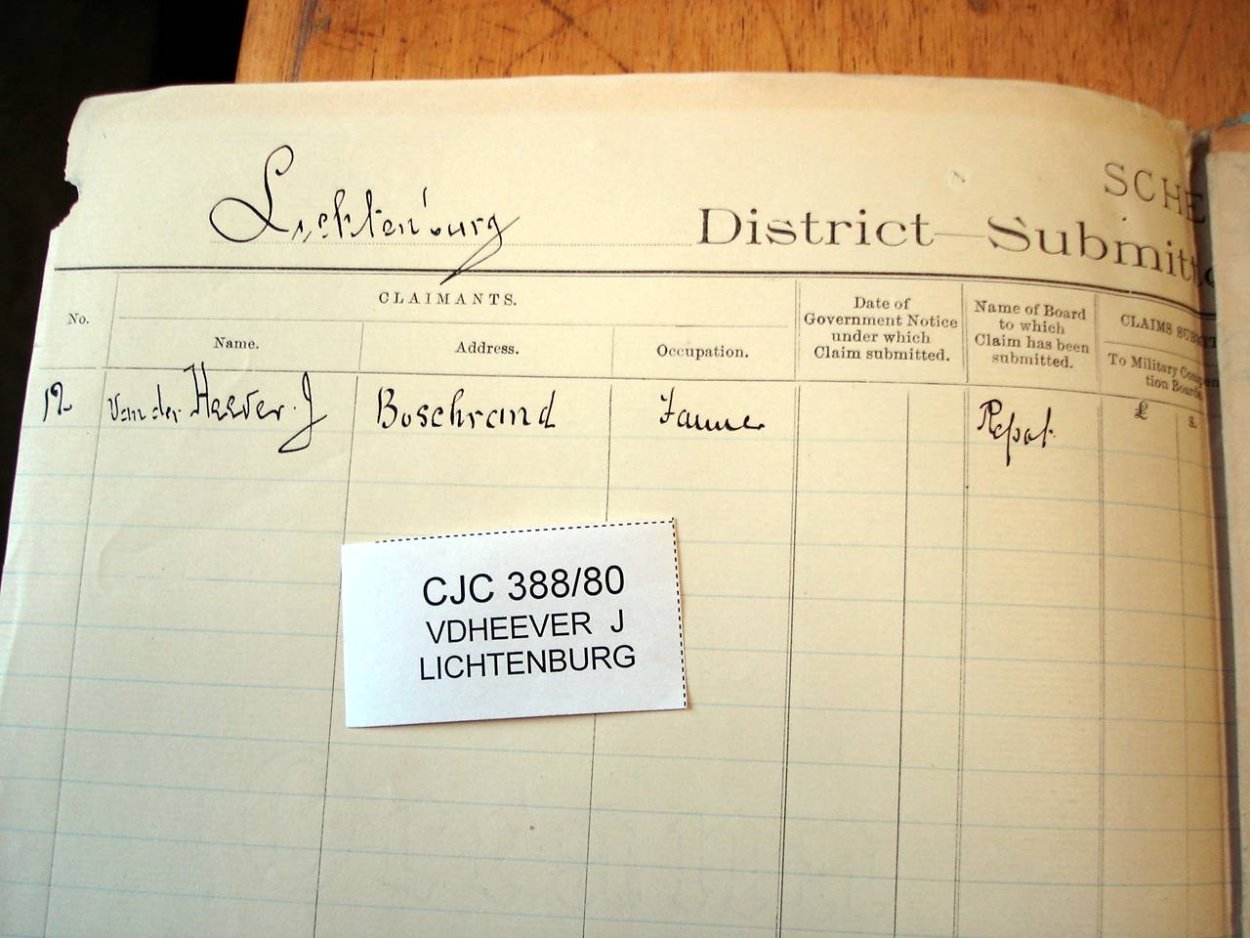 SCHE
Lichtenburg District—Submitte
CLAIMANTS.
No.
Name.
Address.
Occupation.
Date of
Government Notice
under which
Claim submitted.
Name of Board
to which
Claim has been
submitted.
CLAIMS SUBMITT
To Military Compen
tion Boards
12 Van der Heever J Boschrand Farmer Repat. £ s.
CJC 388/80
VDHEEVER J
LICHTENBURG